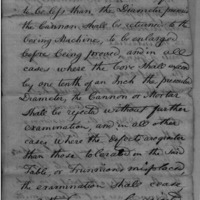 to be less than the Diameter proven
the Cannon shall be returned to the
boring Machine, to be enlarged
before being proved, and in all
cases where the bore shall exceed
by one tenth of an Inch the prescribed
Diameter, the Cannon or Mortar
shall be rejected without further
examination and in all other
cases where the defects are greater
than those tolerated in the said
Table, or Trunnions misplaced
the examination shall cease